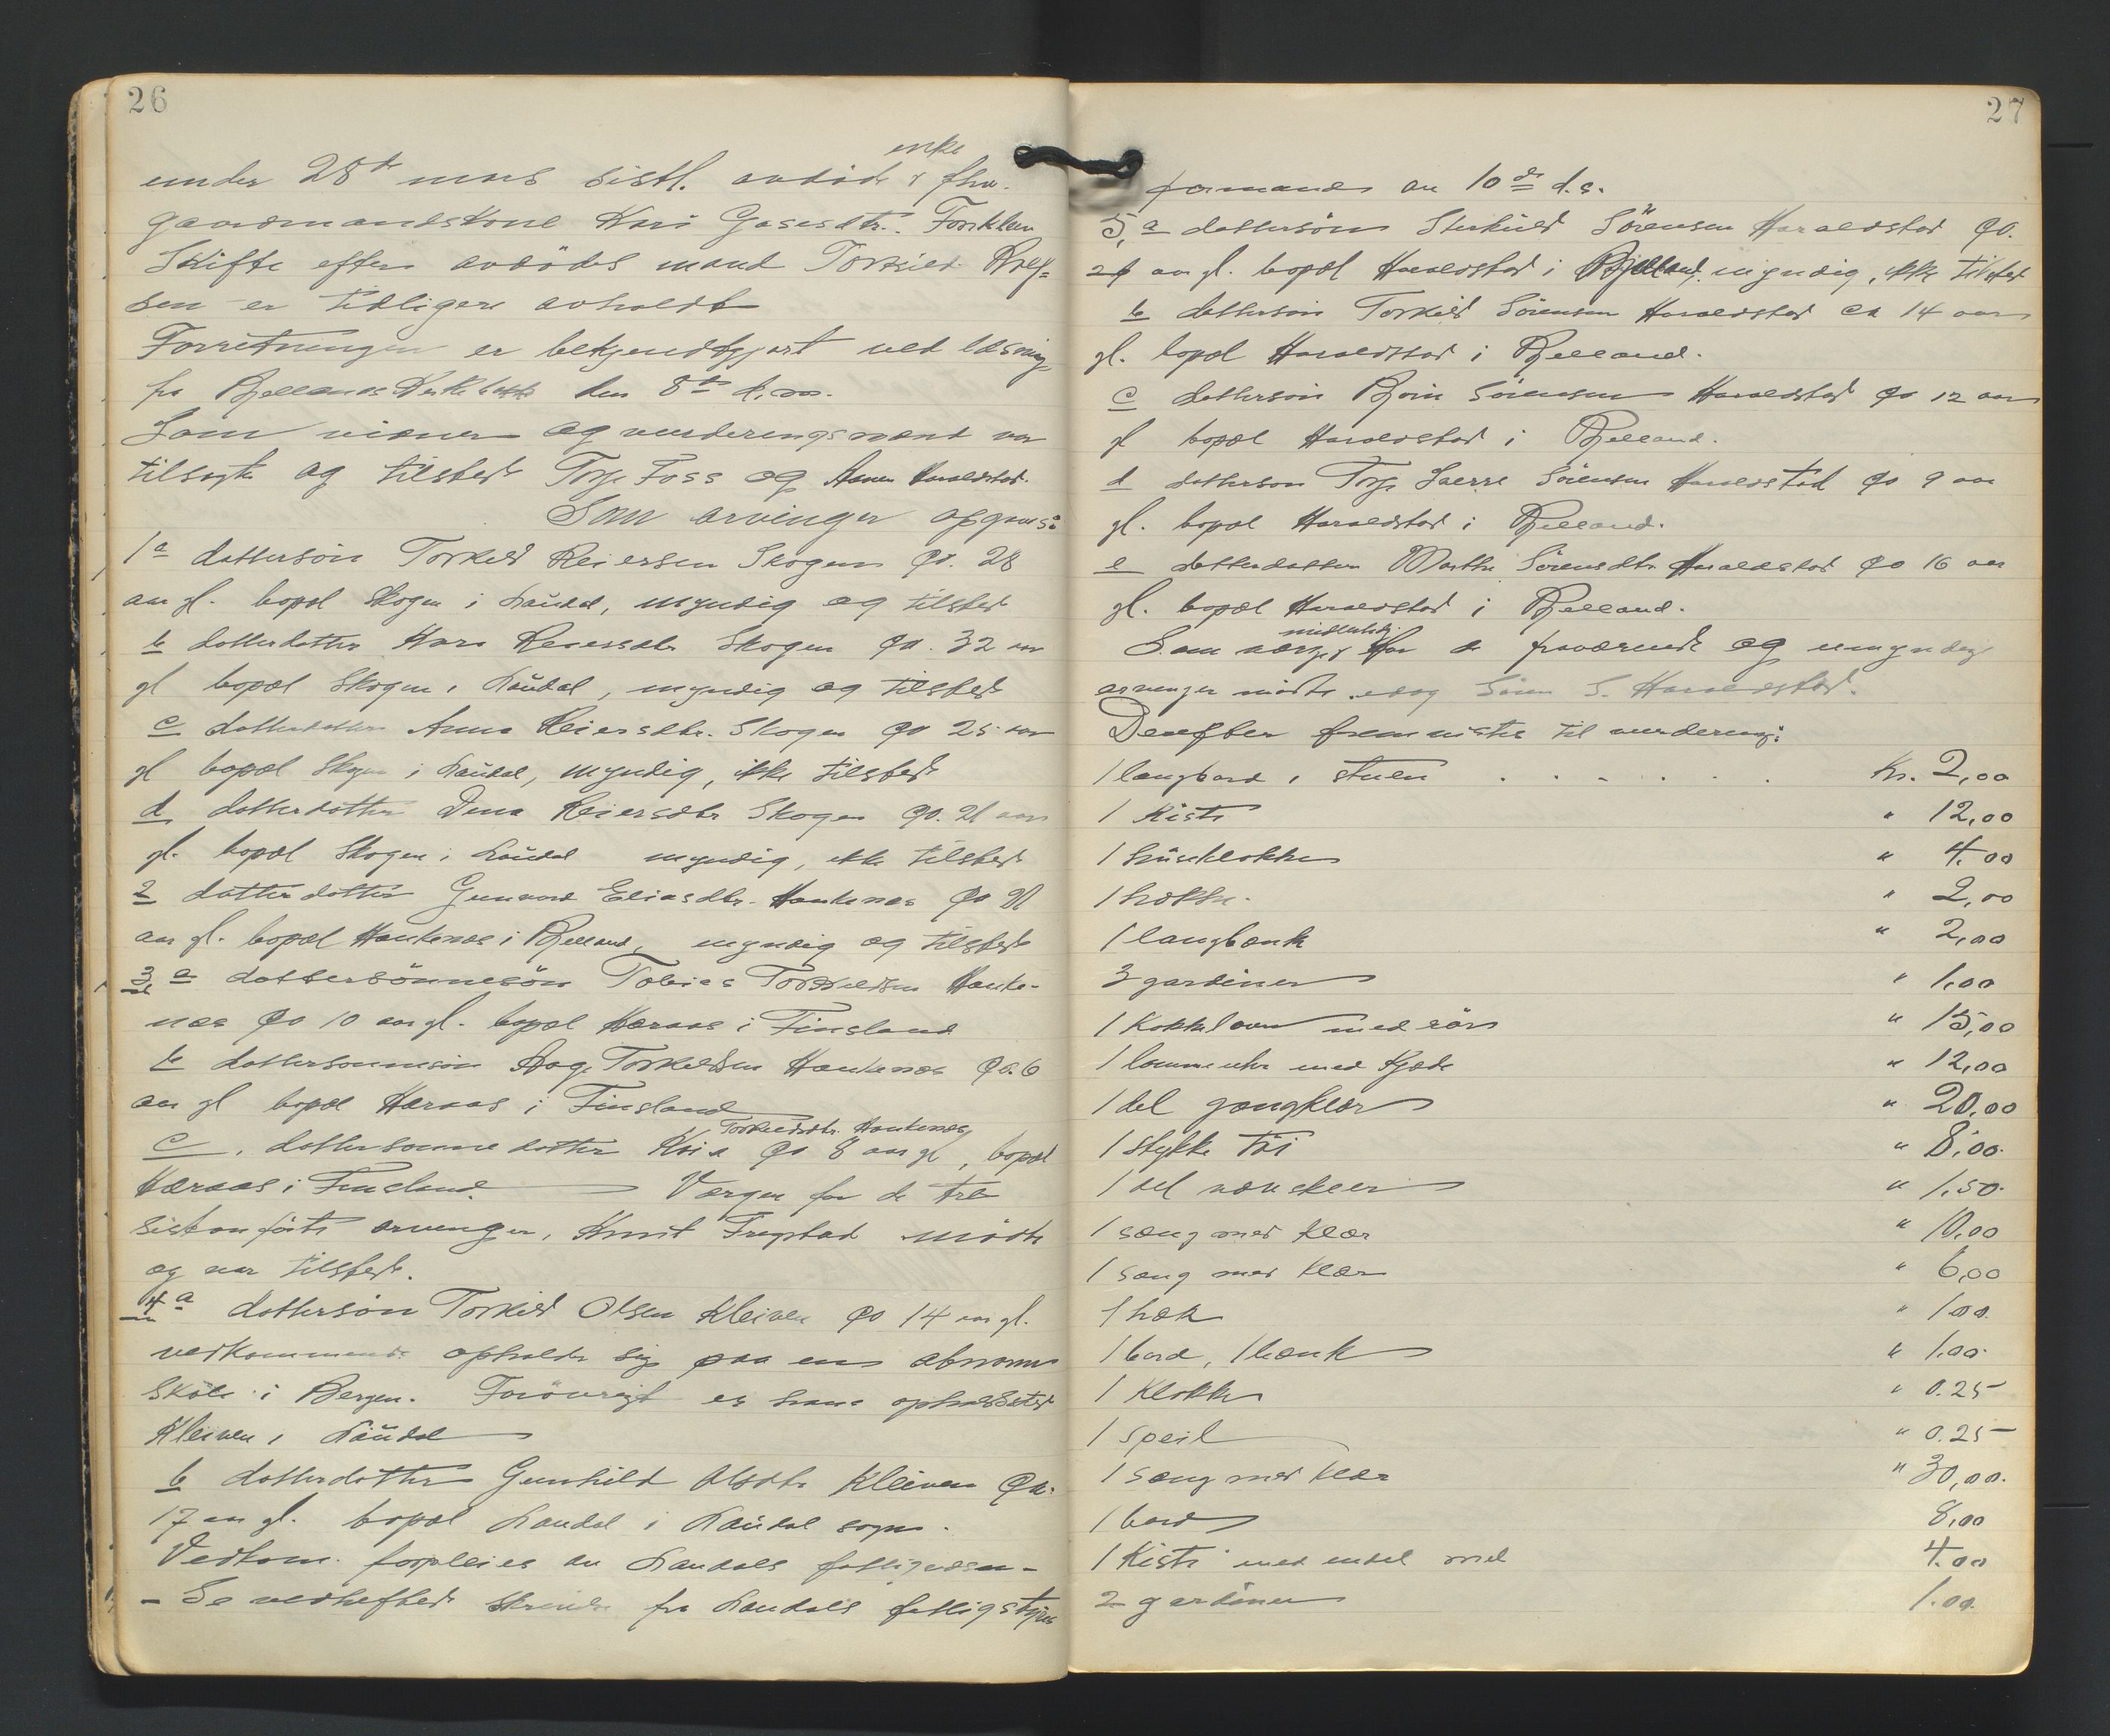 26
enke
under 28de mars sistl. avdöde fhv.
gaardmandskone Kari Gasesdtr.
Skifte efter avdödes mand Torkild
sen er tidligere avholdt
Forretningen er bekjendtgjort ved læsning
fra Bjellands Kirkebakke den 8de d.m.
Som vidner og vurderingsmænd var
tilsagte og tilstede Torje Foss og Haraldstad.
Som arvinger opgaves:
1 a dattersön Torkild Reiersen Skogen ca. 28
aar gl. bopæl Skogen i Laudal, myndig og tilstede
b datterdatter Reiersdtr Skogen ca. 32 aar
gl bopæl Skogen i Laudal, myndig og tilstede
c datterdatter Anna Reiersdtr. Skogen ca 25 aar
gl bopæl Skogen i Laudal, myndig, ikke tilstede
d datterdatter Reiersdtr Skogen ca. 21 aar
gl. bopæl Skogen i Laudal myndig, ikke tilstede
2 datterdatter Gunvord Eliasdtr. Haukenæs ca 21
aar gl. bopæl Haukenæs i Bjelland, myndig og tilstede
3, a dattersönnesön Tobias Torkildsen Hauke-
næs ca 10 aar gl. bopæl i Finsland
b dattersönnesön Aage Torkildsen Haukenæs ca. 6
aar gl bopæl i Finsland
Torkildsdtr. Haukenæs
c, dattersönnedatter ca 8 aar gl, bopæl
i Finsland. Værgen for de tre
sistanförte arvinger, Knut mödte
og var tilstede.
4 a dattersön Torkild Olsen Kleiven ca 14 aar gl.
vedkommende opholder sig paa en abnorm
skole i Bergen. Forövrigt er hans opholdssted
Kleiven i Laudal
b datterdatter Gunhild Olsdtr Kleiven ca.
17 aar gl. bopæl Laudal i Laudal sogn.
Vedkom. forpleies av Laudals fattigvæsen -
- Se vedheftede skrivelse fra Laudals fattigstyres
27
formand av 10de d.s.
5, a dattersön Sterkuld Sörensen Haraldstad ca.
aar gl. bopæl Haraldstad i Bjelland, myndig, ikke tilstede
b dattersön Torkild Sörensen Haraldstad ca 14 aar
gl. bopæl Haraldstad i Bjelland.
c dattersön Sörensen Haraldstad ca 12 aar
gl bopæl Haraldstad i Bjelland.
d dattersön Torje Sverre Sörensen Haraldstad ca 9 aar
gl. bopæl Haraldstad i Bjelland.
e datterdatter Marthe Sörensdtr Haraldstad ca 16 aar
gl. bopæl Haraldstad i Bjelland.
midlertidig
Som værge for de fraværende og umyndige
arvinger mödte idag Sören S. Haraldstad.
Derefter fremvistes til vurdering:
1 langbord i stuen . . . . . . Kr. 2,00
1 Kiste " 12,00
1 husklokke " 4.00
1 " 2,00
1 langbænk " 2,00
3 gardiner " 1,00
1 Kokkelovn med rör " 15,00
1 lommeuhr med Kjede " 12,00
1 del gangklær " 20,00
1 stykke töi " 8,00
1 del " 1.50
1 sæng med klær " 10,00
1 sæng med klær " 6,00
1 " 1.00
1 bord, 1 bænk " 1.00
1 Klokke " 0.25
1 speil " 0.25
1 sæng med klær " 30,00
1 bord 8,00
1 Kiste med endel 4.00
2 gardiner 1.00